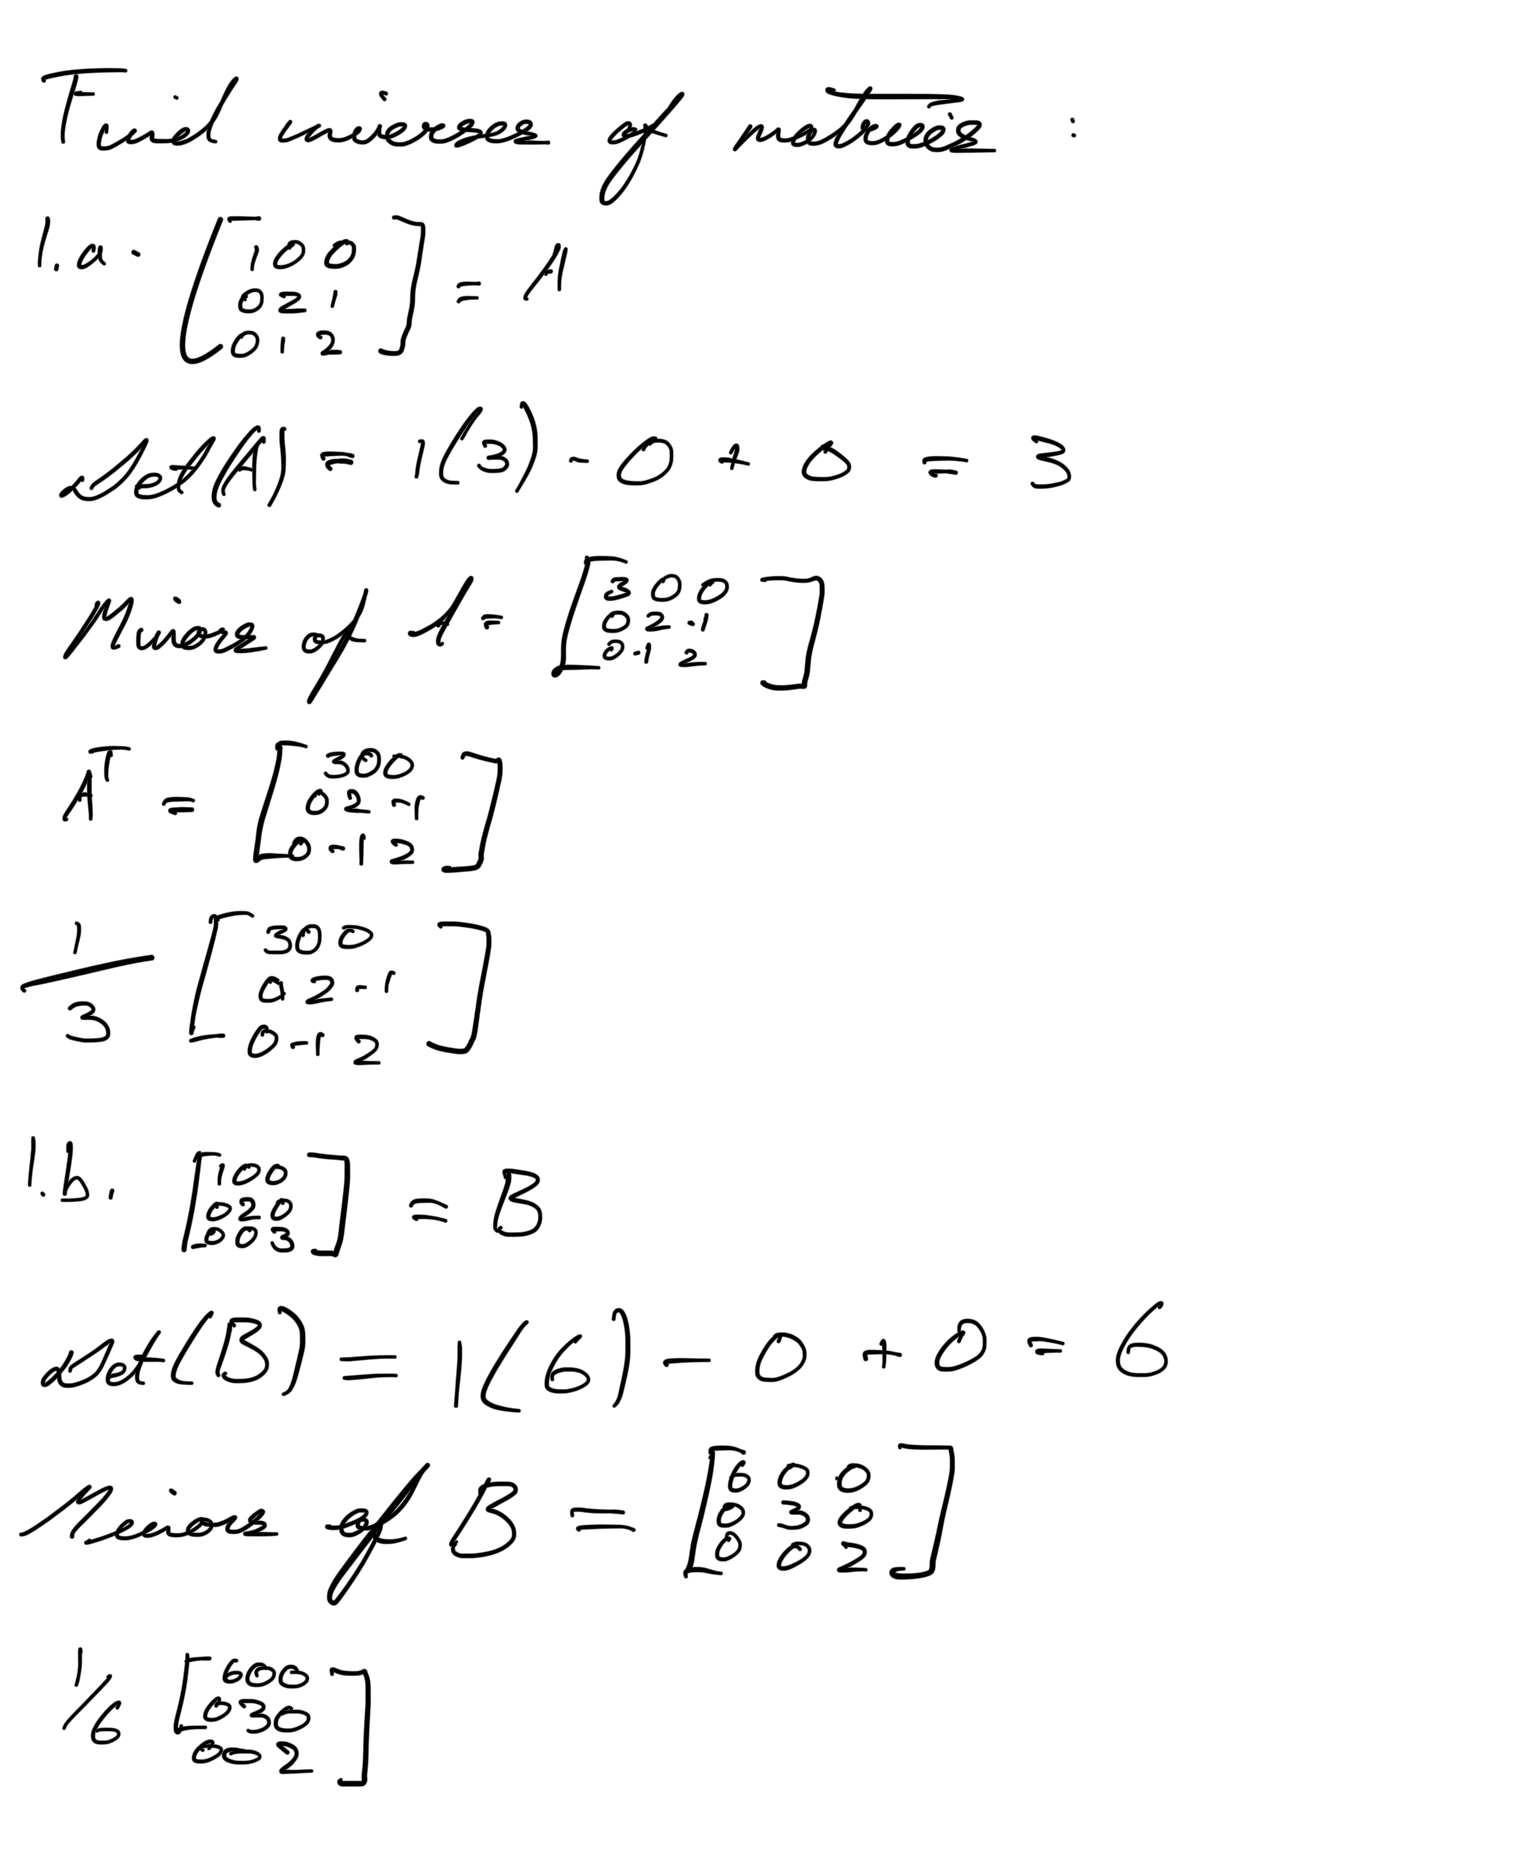 Find inverses of matrices :
1.a. [ 1 0 0
0 2 1
0 1 2 ] = A
Det(A) = 1(3) - 0 + 0 = 3
Minors of A = [ 3 0 0
0 2 -1
0 -1 2 ]
A^T = [ 3 0 0
0 2 -1
0 -1 2 ]
1/3 [ 3 0 0
0 2 -1
0 -1 2 ]
1.b. [ 1 0 0
0 2 0
0 0 3 ] = B
Det(B) = 1(6) - 0 + 0 = 6
Minors of B = [ 6 0 0
0 3 0
0 0 2 ]
1/6 [ 6 0 0
0 3 0
0 0 2 ]